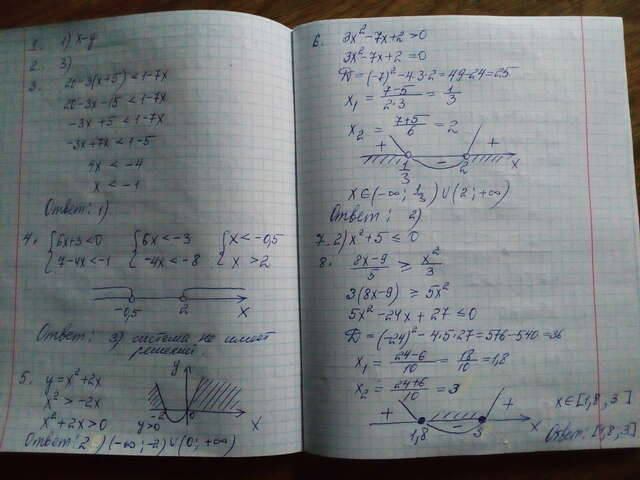 1. 1) x-y
2 3)
3. 20-3(x+5)<1-7x
20-3x-15<1-7x
-3x+5<1-7x
-3x+7x<1-5
4x<-4
x<-1
Ответ: 1)
4. {6x+3<0 {6x<-3 {x<-0,5
{7-4x<-1 {-4x<-8 {x>2
-0,5 2 x
Ответ: 3) система не имеет
решений.
5. y=x²+2x
x²>-2x
x²+2x>0
y
-2 0 x
y>0
Ответ: 2) (-∞;-2)∪(0;+∞)
6. 3x²-7x+2>0
3x²-7x+2=0
D=(-7)²-4·3·2=49-24=25
x₁=(7-5)/(2·3)=1/3
x₂=(7+5)/6=2
+ - +
1/3 2 x
x∈(-∞; 1/3)∪(2;+∞)
Ответ: 2)
7. 2) x²+5≤0
8. (8x-9)/5 ≥ x²/3
3(8x-9)≥5x²
5x²-24x+27≤0
D=(-24)²-4·5·27=576-540=36
x₁=(24-6)/10=18/10=1,8
x₂=(24+6)/10=3
+ - +
1,8 3 x
x∈[1,8;3]
Ответ: [1,8;3]